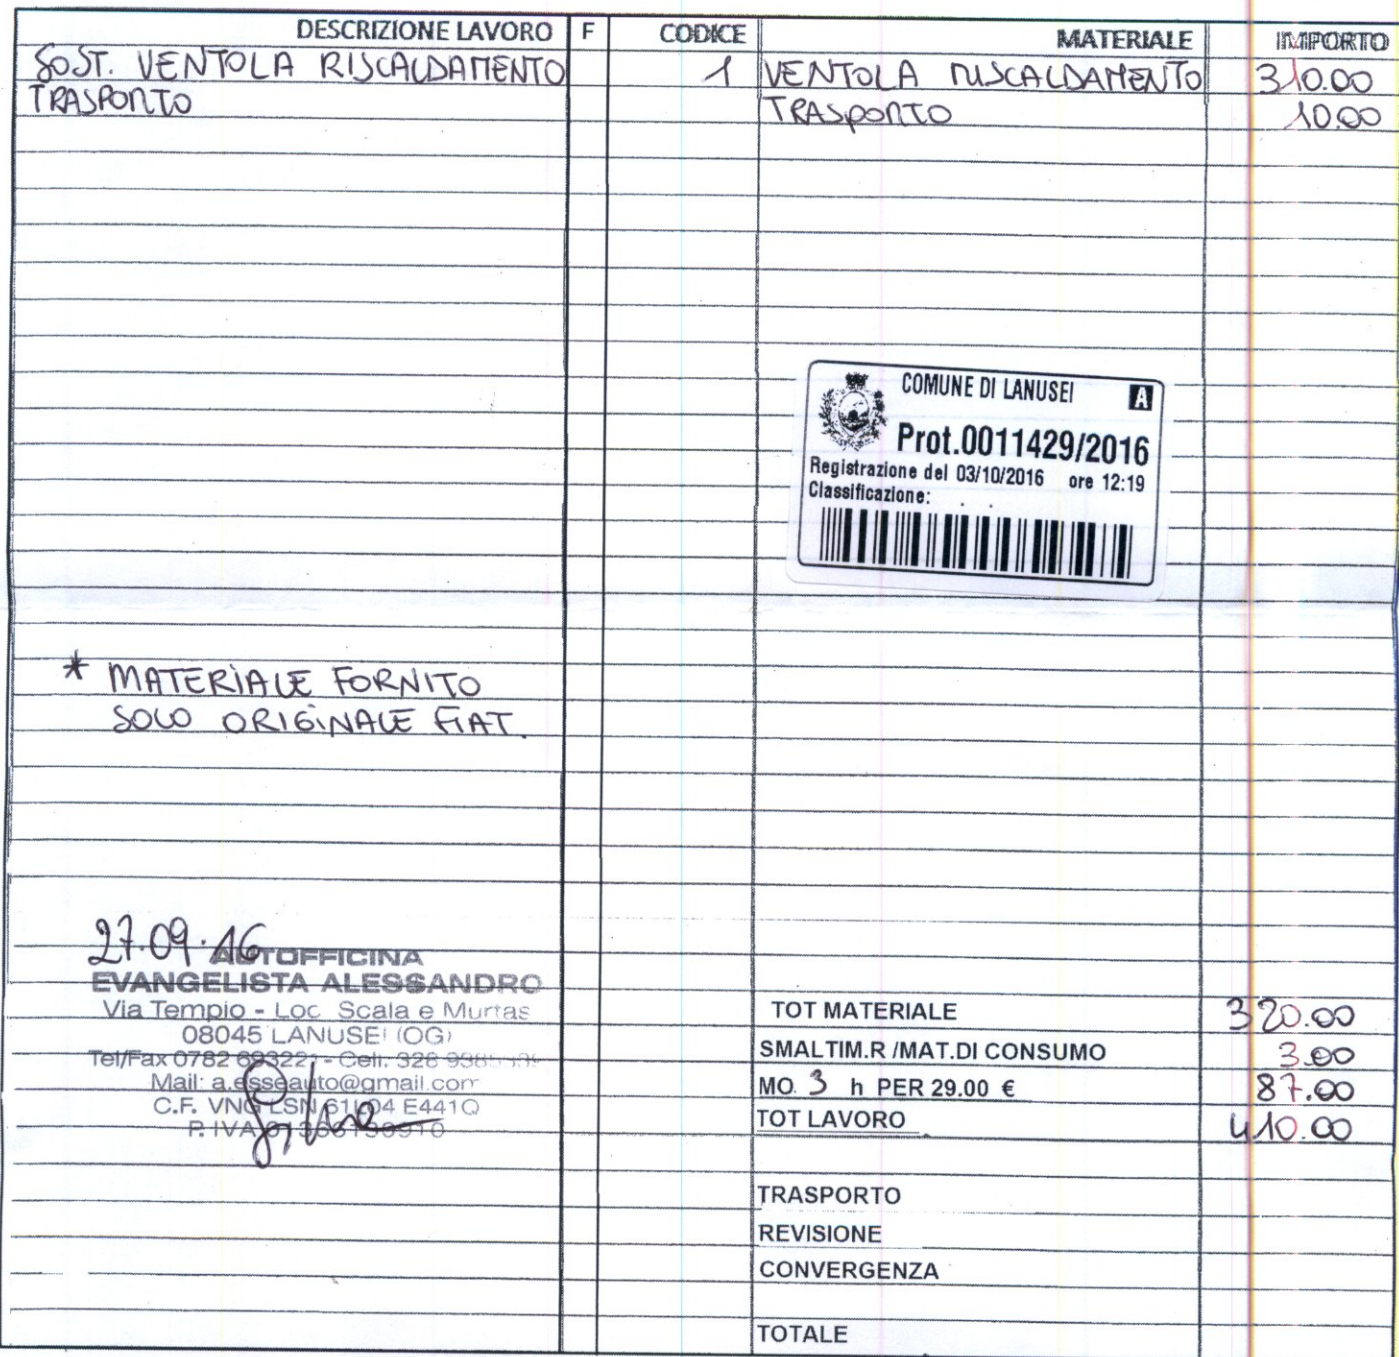 DESCRIZIONE LAVORO F CODICE MATERIALE IMPORTO
SOST. VENTOLA RISCALDAMENTO 1 VENTOLA RISCALDAMENTO 310.00
TRASPORTO TRASPORTO 10.00
COMUNE DI LANUSEI A
Prot.0011429/2016
Registrazione del 03/10/2016 ore 12:19
Classificazione: . .
* MATERIALE FORNITO
SOLO ORIGINALE FIAT.
27.09.16
AUTOFFICINA
EVANGELISTA ALESSANDRO
Via Tempio - Loc Scala e Murtas
08045 LANUSEI (OG)
Tel/Fax 0782 - Cell. 328
Mail: a.esseauto@gmail.com
C.F. VNG LSN E441Q
P. IVA
TOT MATERIALE 320.00
SMALTIM.R /MAT.DI CONSUMO 3.00
MO. 3 h PER 29.00 € 87.00
TOT LAVORO 410.00
TRASPORTO
REVISIONE
CONVERGENZA
TOTALE